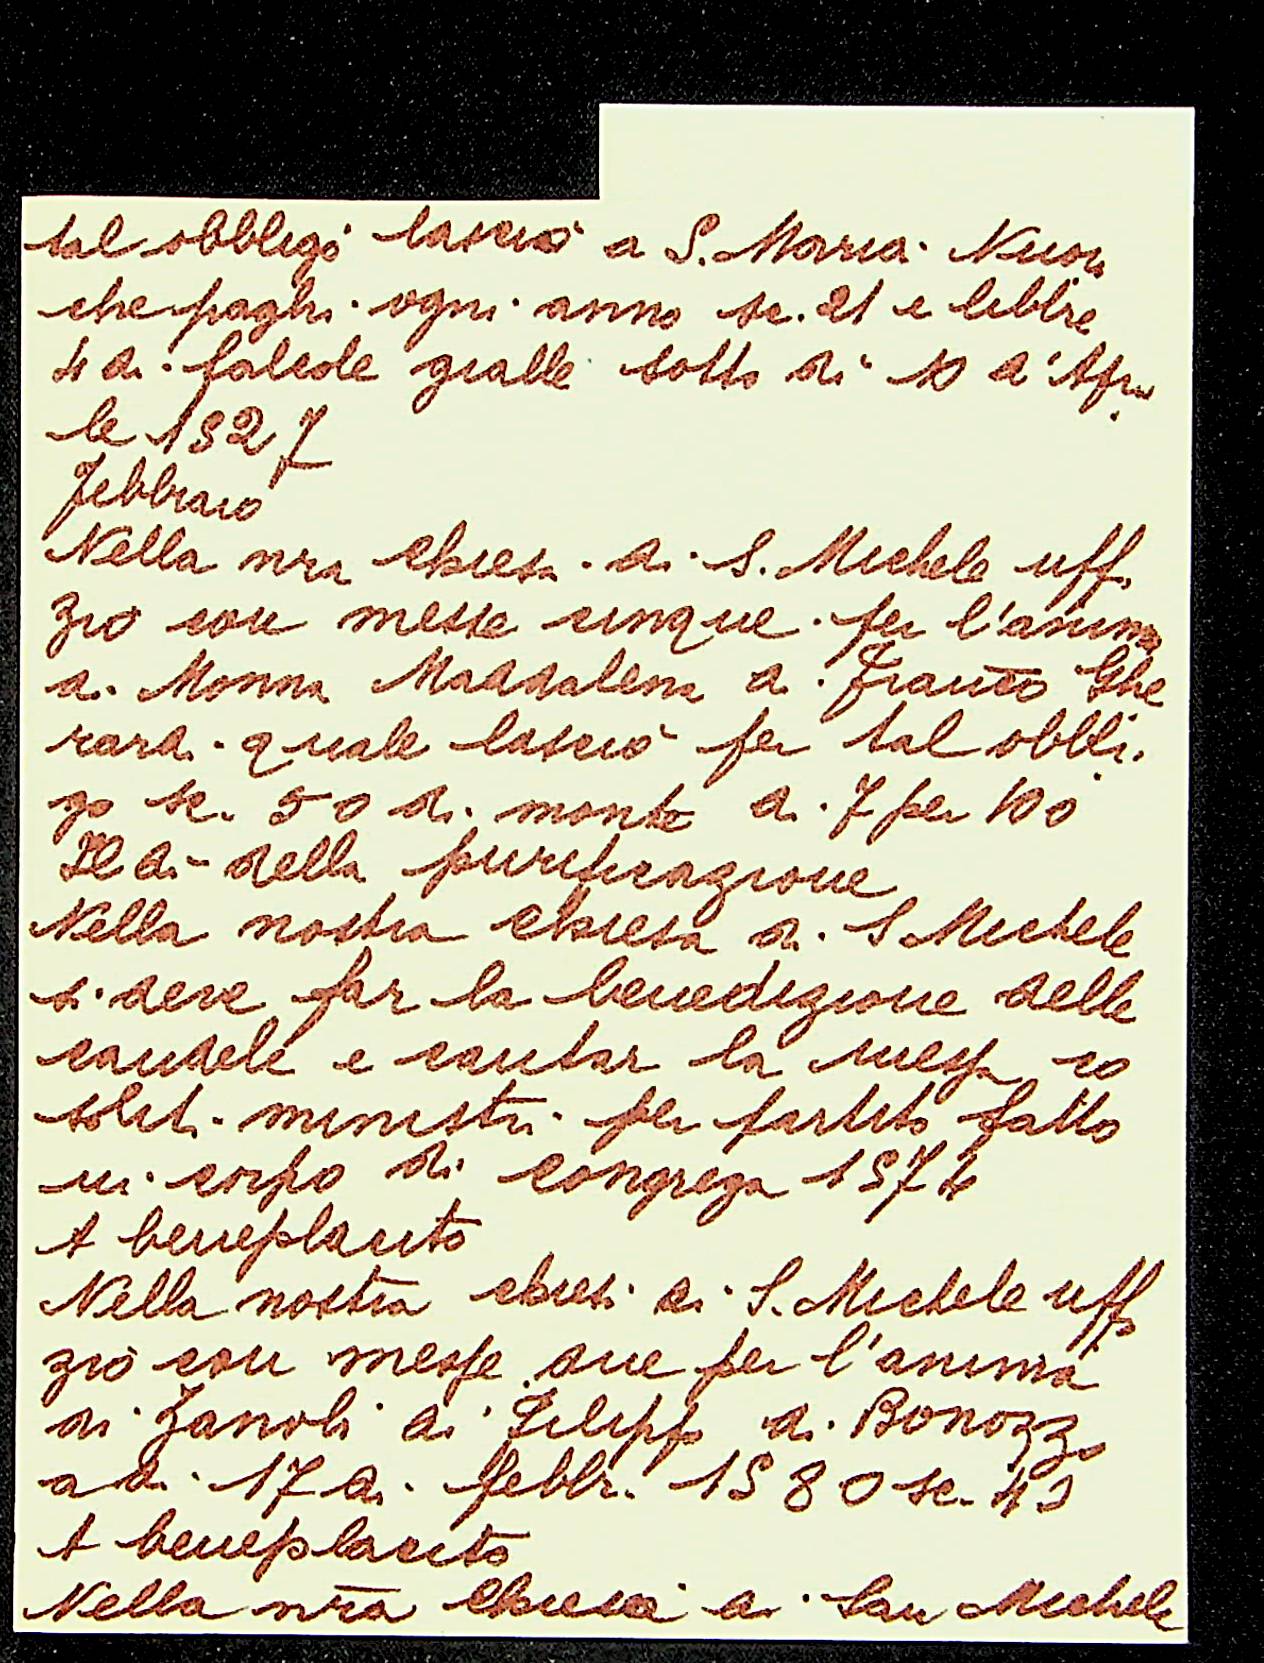 tal obbligo lasciò a S. Maria Nuova
che paghi ogni anno sc. 21 e libbre
4 di falcole gialle sotto dì 10 d'Apri
le 1527
Febbraio
Nella nra Chiesa di S. Michele uffi
zio con messe cinque per l'anima
di Monna Maddalena di Franco Ghe
rardi quale lasciò per tal obbli
go sc. 50 di monte a 7 per 100
Il dì della purificazione
Nella nostra Chiesa di S Michele
si deve far la benedizione delle
candele e cantar la messa co
soliti ministri per partito fatto
in corpo di Congrega 1574
A beneplacito
Nella nostra chiesa di S. Michele uffi
zio con messe due per l'anima
di Zanobi di Filippo di Bonozzo
a dì 17 di febbr. 1580 sc. 43
A beneplacito
Nella nra Chiesa di San Michele